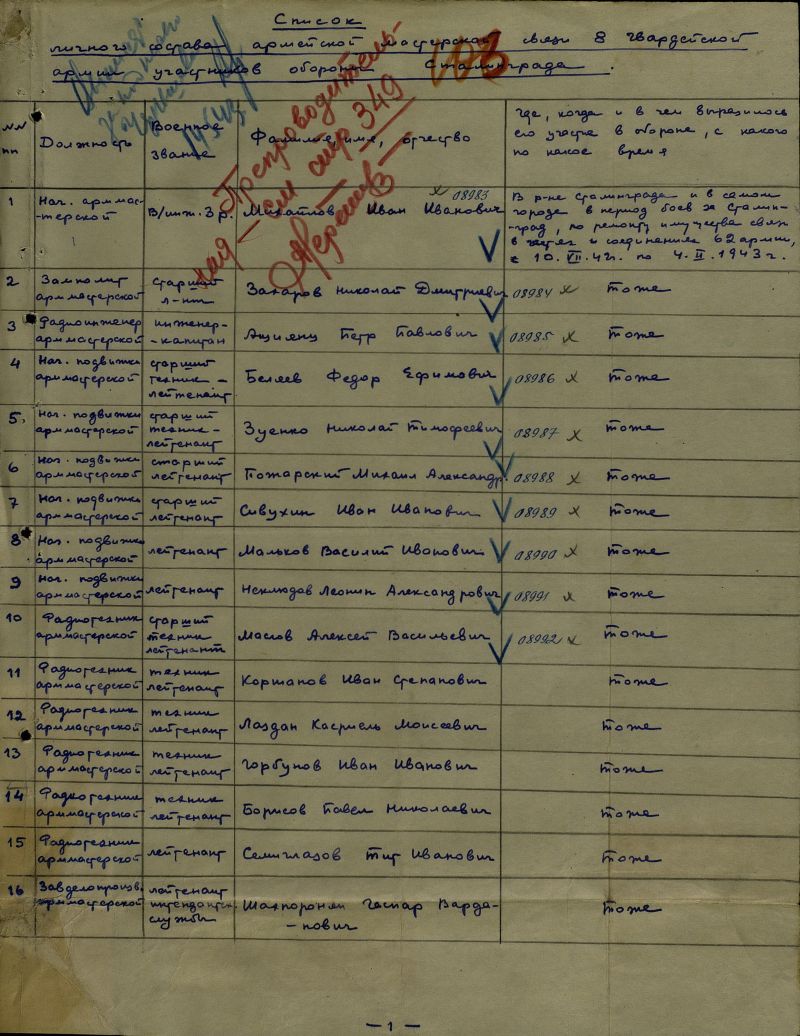 Список
личного состава армейской мастерской связи 8 гвардейской
армии участников обороны Сталинграда.
103
Препроводитель-
ная - см стр 349
NN пп
Должность
Военное звание
Фамилия, имя, отчество
Где, когда и в чем выразилось
его участие в обороне, с какого
по какое время
1
Нач. арммас-
-терской
В/инж. 3 р.
Михайлов Иван Иванович
x 08983
В р-не Сталинграда и в самом
городе в период боев за Сталин-
-град, по ремонту имущества связи
в частях и соединениях 62 армии,
с 10.VII.42г. по 4.II.1943г.
2
Замполит
армастерской
старший
л-нт
Захаров Николай Дмитриевич
08984 x
тоже
3
Радиоинженер
арммастерской
инженер-
-капитан
Ащиянц Петр Павлович
08985 x
тоже
4
Нач. подвижки
армастерской
старший
техник -
лейтенант
Беляев Федор Ефимович
08986 x
тоже
5.
Нач. подвижки
армастерской
старший
техник -
лейтенант
Зуенко Николай Тимофеевич
08987 x
тоже
6
Нач. подвижки
армастерской
старший
лейтенант
Пожарский Михаил Александр.
08988 x
тоже
7
Нач. подвижки
армастерской
старший
лейтенант
Сивухин Иван Иванович
08989 x
тоже
8
Нач. подвижки
арммастерской
лейтенант
Мальков Василий Иванович
08990 x
тоже
9
Нач. подвижки
арммастерской
лейтенант
Неклюдов Леонин Александрович
08991 x
тоже
10
Радиотехник
армастерской
старший
техник
лейтенант
Маслов Алексей Васильевич
08992 x
тоже
11
Радиотехник
армастерской
техник
лейтенант
Коршанов Иван Степанович
тоже
12
Радиотехник
армастерской
техник
лейтенант
Лаздан Касриель Моисеевич
тоже
13
Радиотехник
армастерской
техник
лейтенант
Горбунов Иван Иванович
тоже
14
Радиотехник
армастерской
техник
лейтенант
Борисов Павел Николаевич
тоже
15
Радиотехник
арммастерской
лейтенант
Семиглазов Тит Иванович
тоже
16
Завделопроизв.
армастерской
лейтенант
интендантск.
службы
Шахпоронян Гаспар Варда-
-нович
тоже
- 1 -